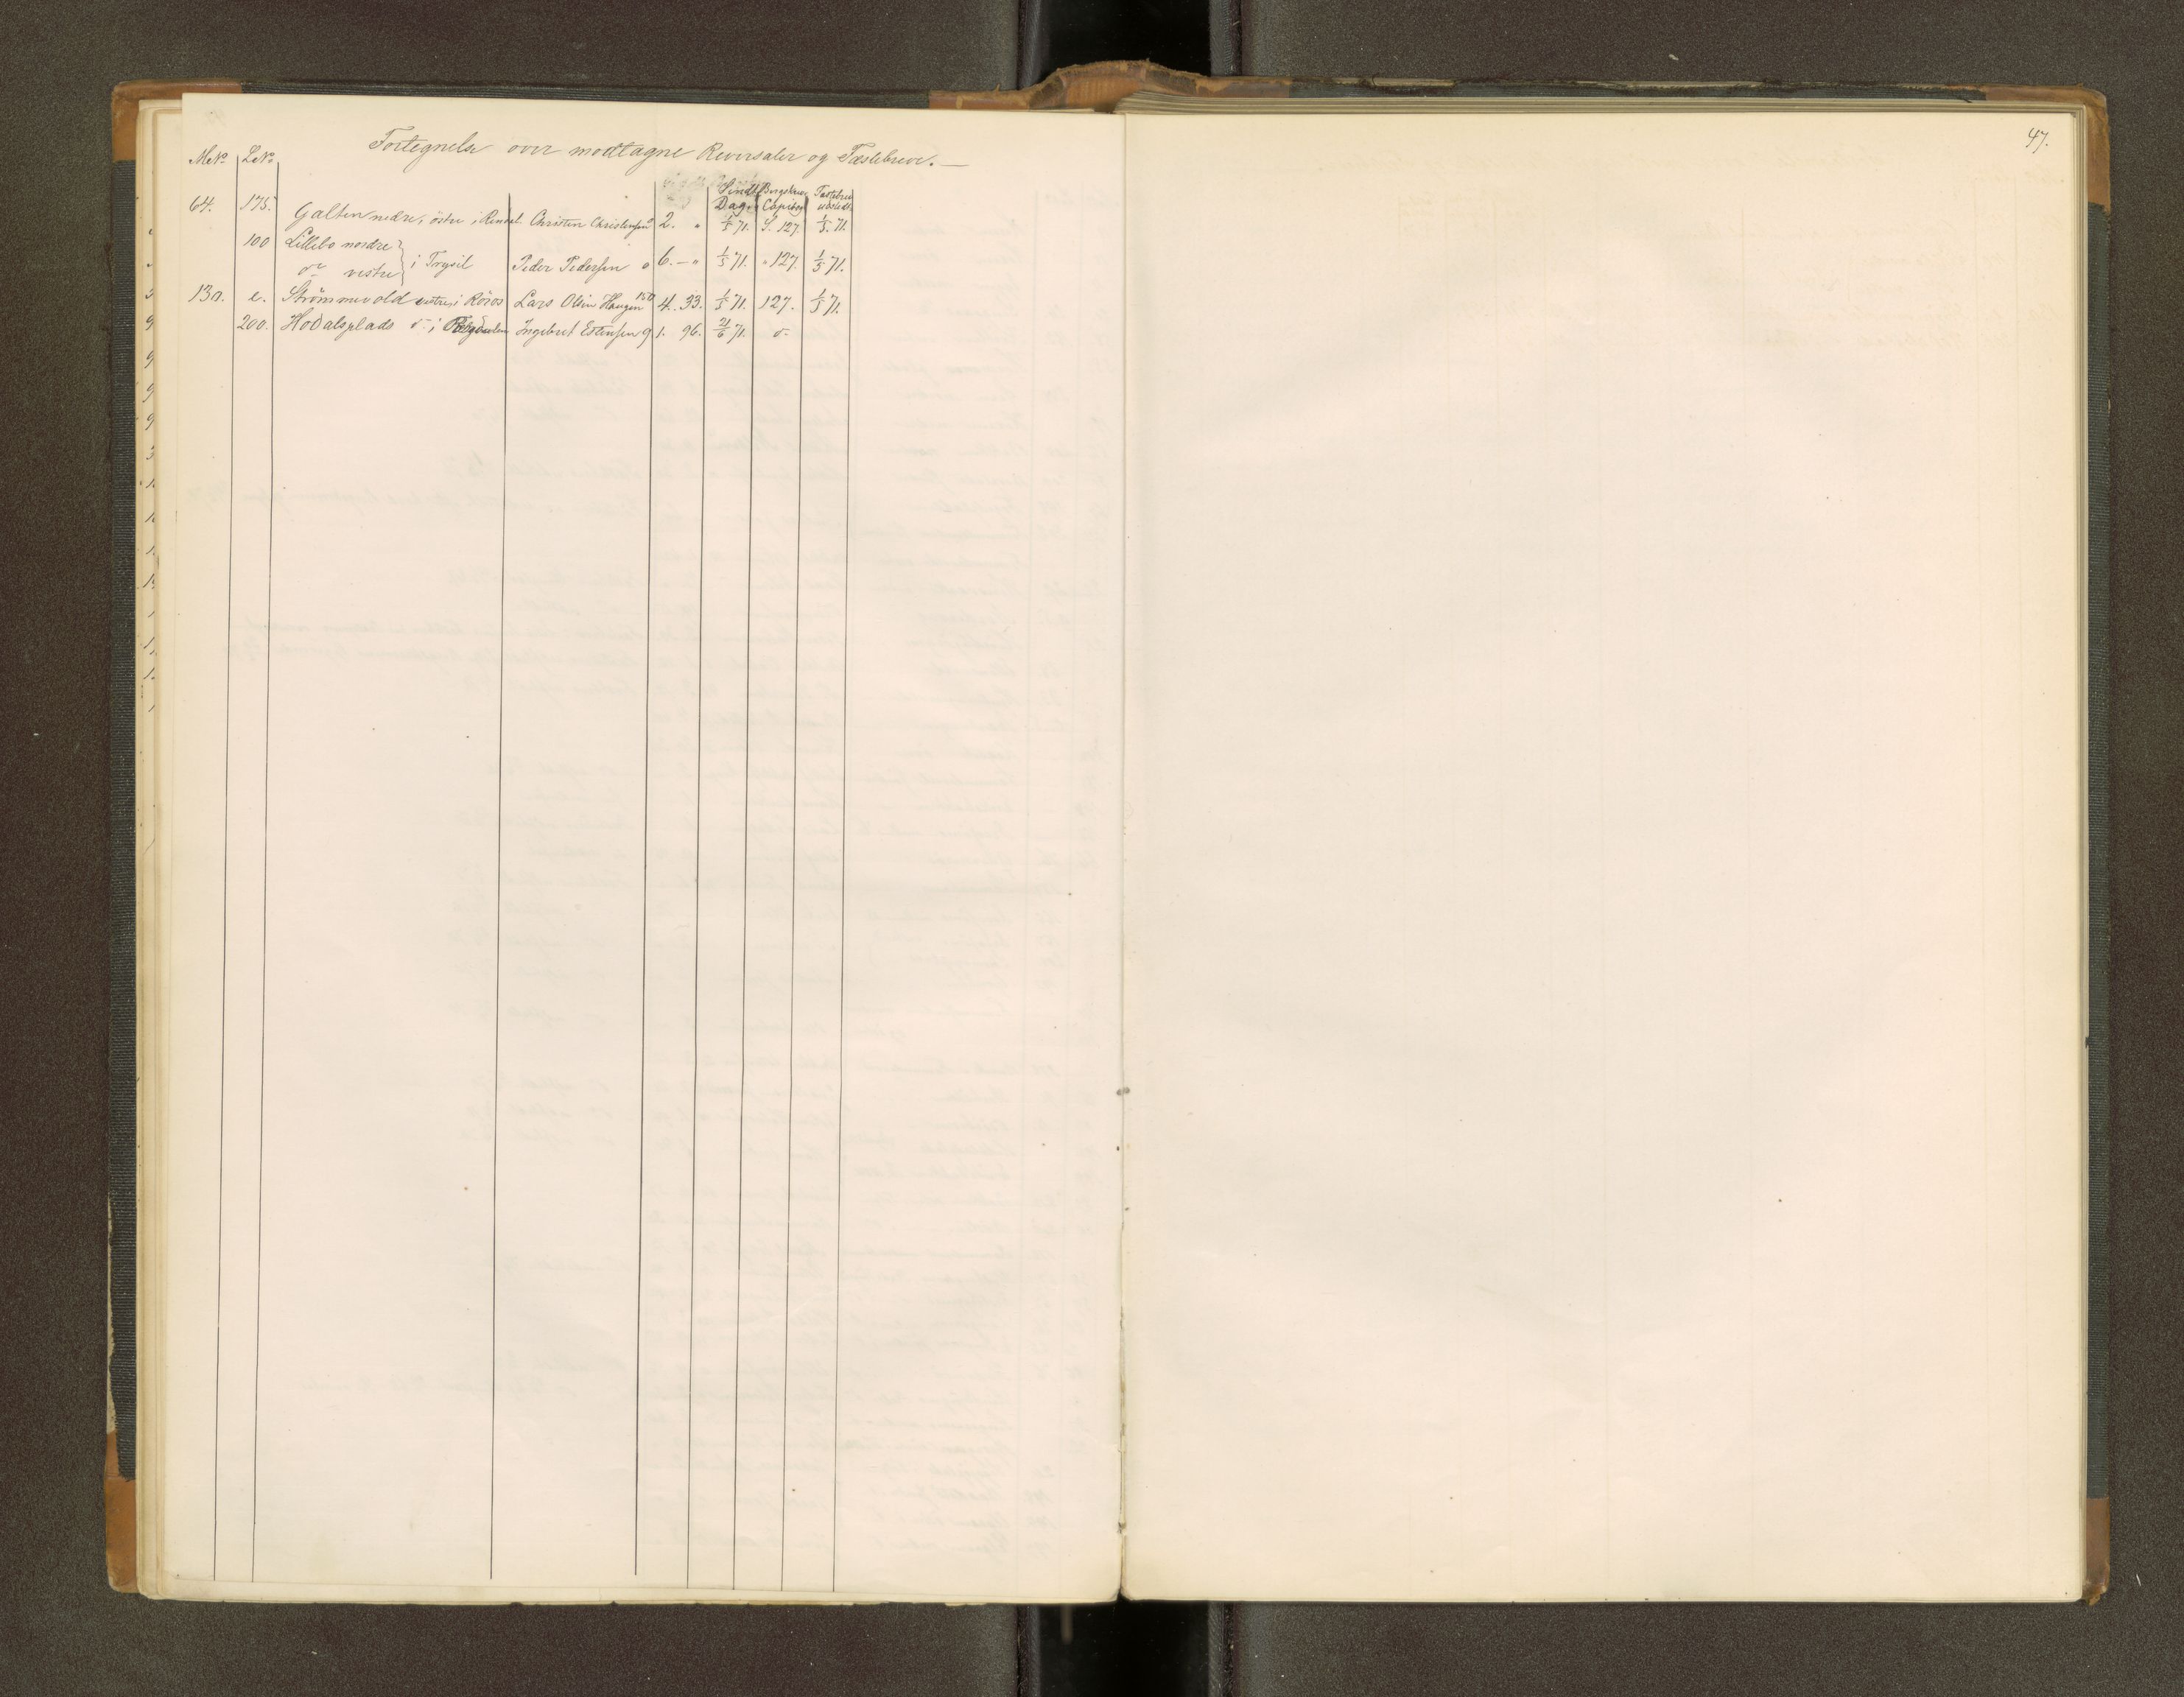 Fortegnelse over modtagne Reversaler og Fæstebreve.—
M.No. L.No.
Sendt Dag Bergskriv. Copibog Fæstebrev udstedt
64. 175. Galten nedre, östre i Rendal. Christen Christensen 2. " 1/5 71. S. 127. 1/5. 71.
100 Lillebo nordre
do vestre } i Trysil Peder Pedersen 6. — " 1/5 71. " 127. 1/5 71.
130. e. Strömmevold vestre i Röros Lars Olsen Haugen 4. 33. 1/5 71. 127. 1/5 71.
200. Hodalsplads i Ingebret Estensen 1. 96. 21/6 71. do
47.